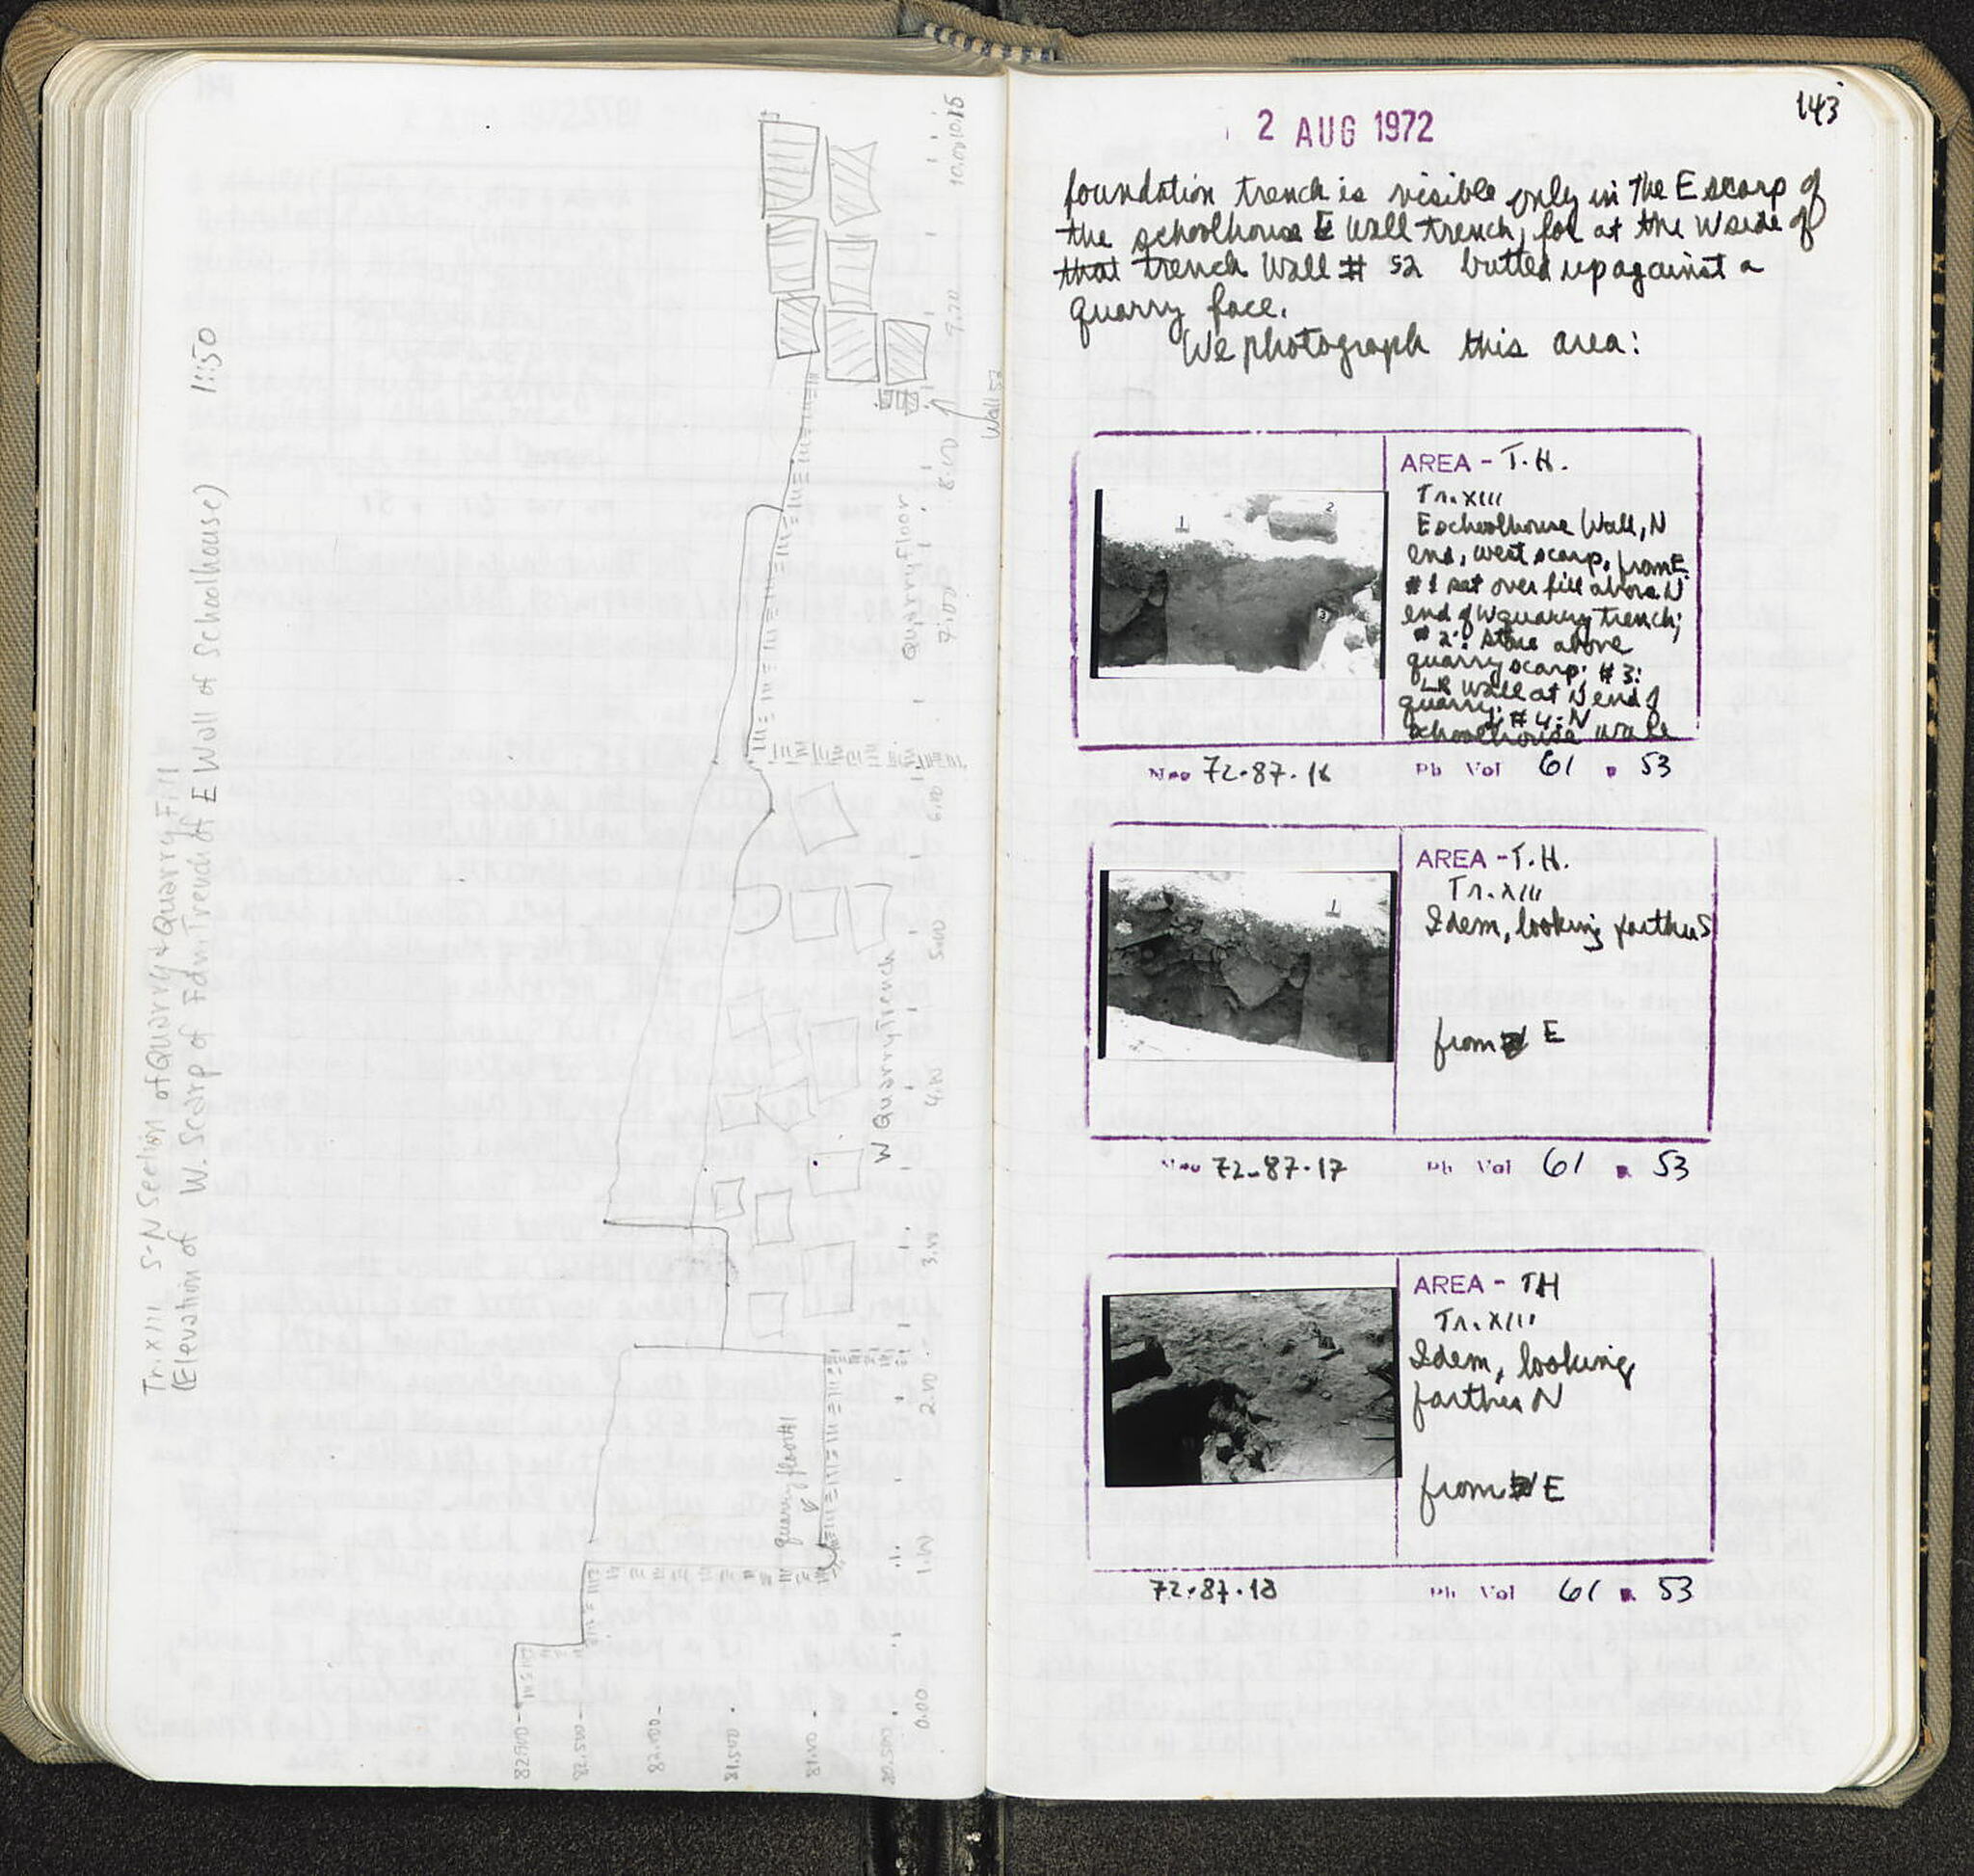 Tr. XIII S-N Section of Quarry & Quarry Fill
(Elevation of W. Scarp of Fdn Trench of E Wall of Schoolhouse) 1:50
Wall 52
Quarry floor
W Quarry Trench
quarry floor
0.00 1.00 2.00 3.00 4.00 5.00 6.00 7.00 8.00 9.00 10.00 10.15
82.500
82.00
81.500
81.00
80.500
143
2 AUG 1972
foundation trench is visible only in the E scarp of
the schoolhouse E Wall trench, for at the W side of
that trench Wall # 52 butted up against a
quarry face.
We photograph this area:
AREA - T.H.
Tr. XIII
E schoolhouse Wall, N
end, west scarp, from E
#1 set over fill above N
end of W quarry trench;
#2: stone above
quarry scarp; #3:
LR Wall at N end of
quarry; #4: N
schoolhouse wall
Neg 72-87-16 Ph Vol 61 p 53
AREA - T.H.
Tr. XIII
Idem, looking farther S
from E
Neg 72-87-17 Ph Vol 61 p 53
AREA - TH
Tr. XIII
Idem, looking
farther N
from E
72-87-18 Ph Vol 61 p 53